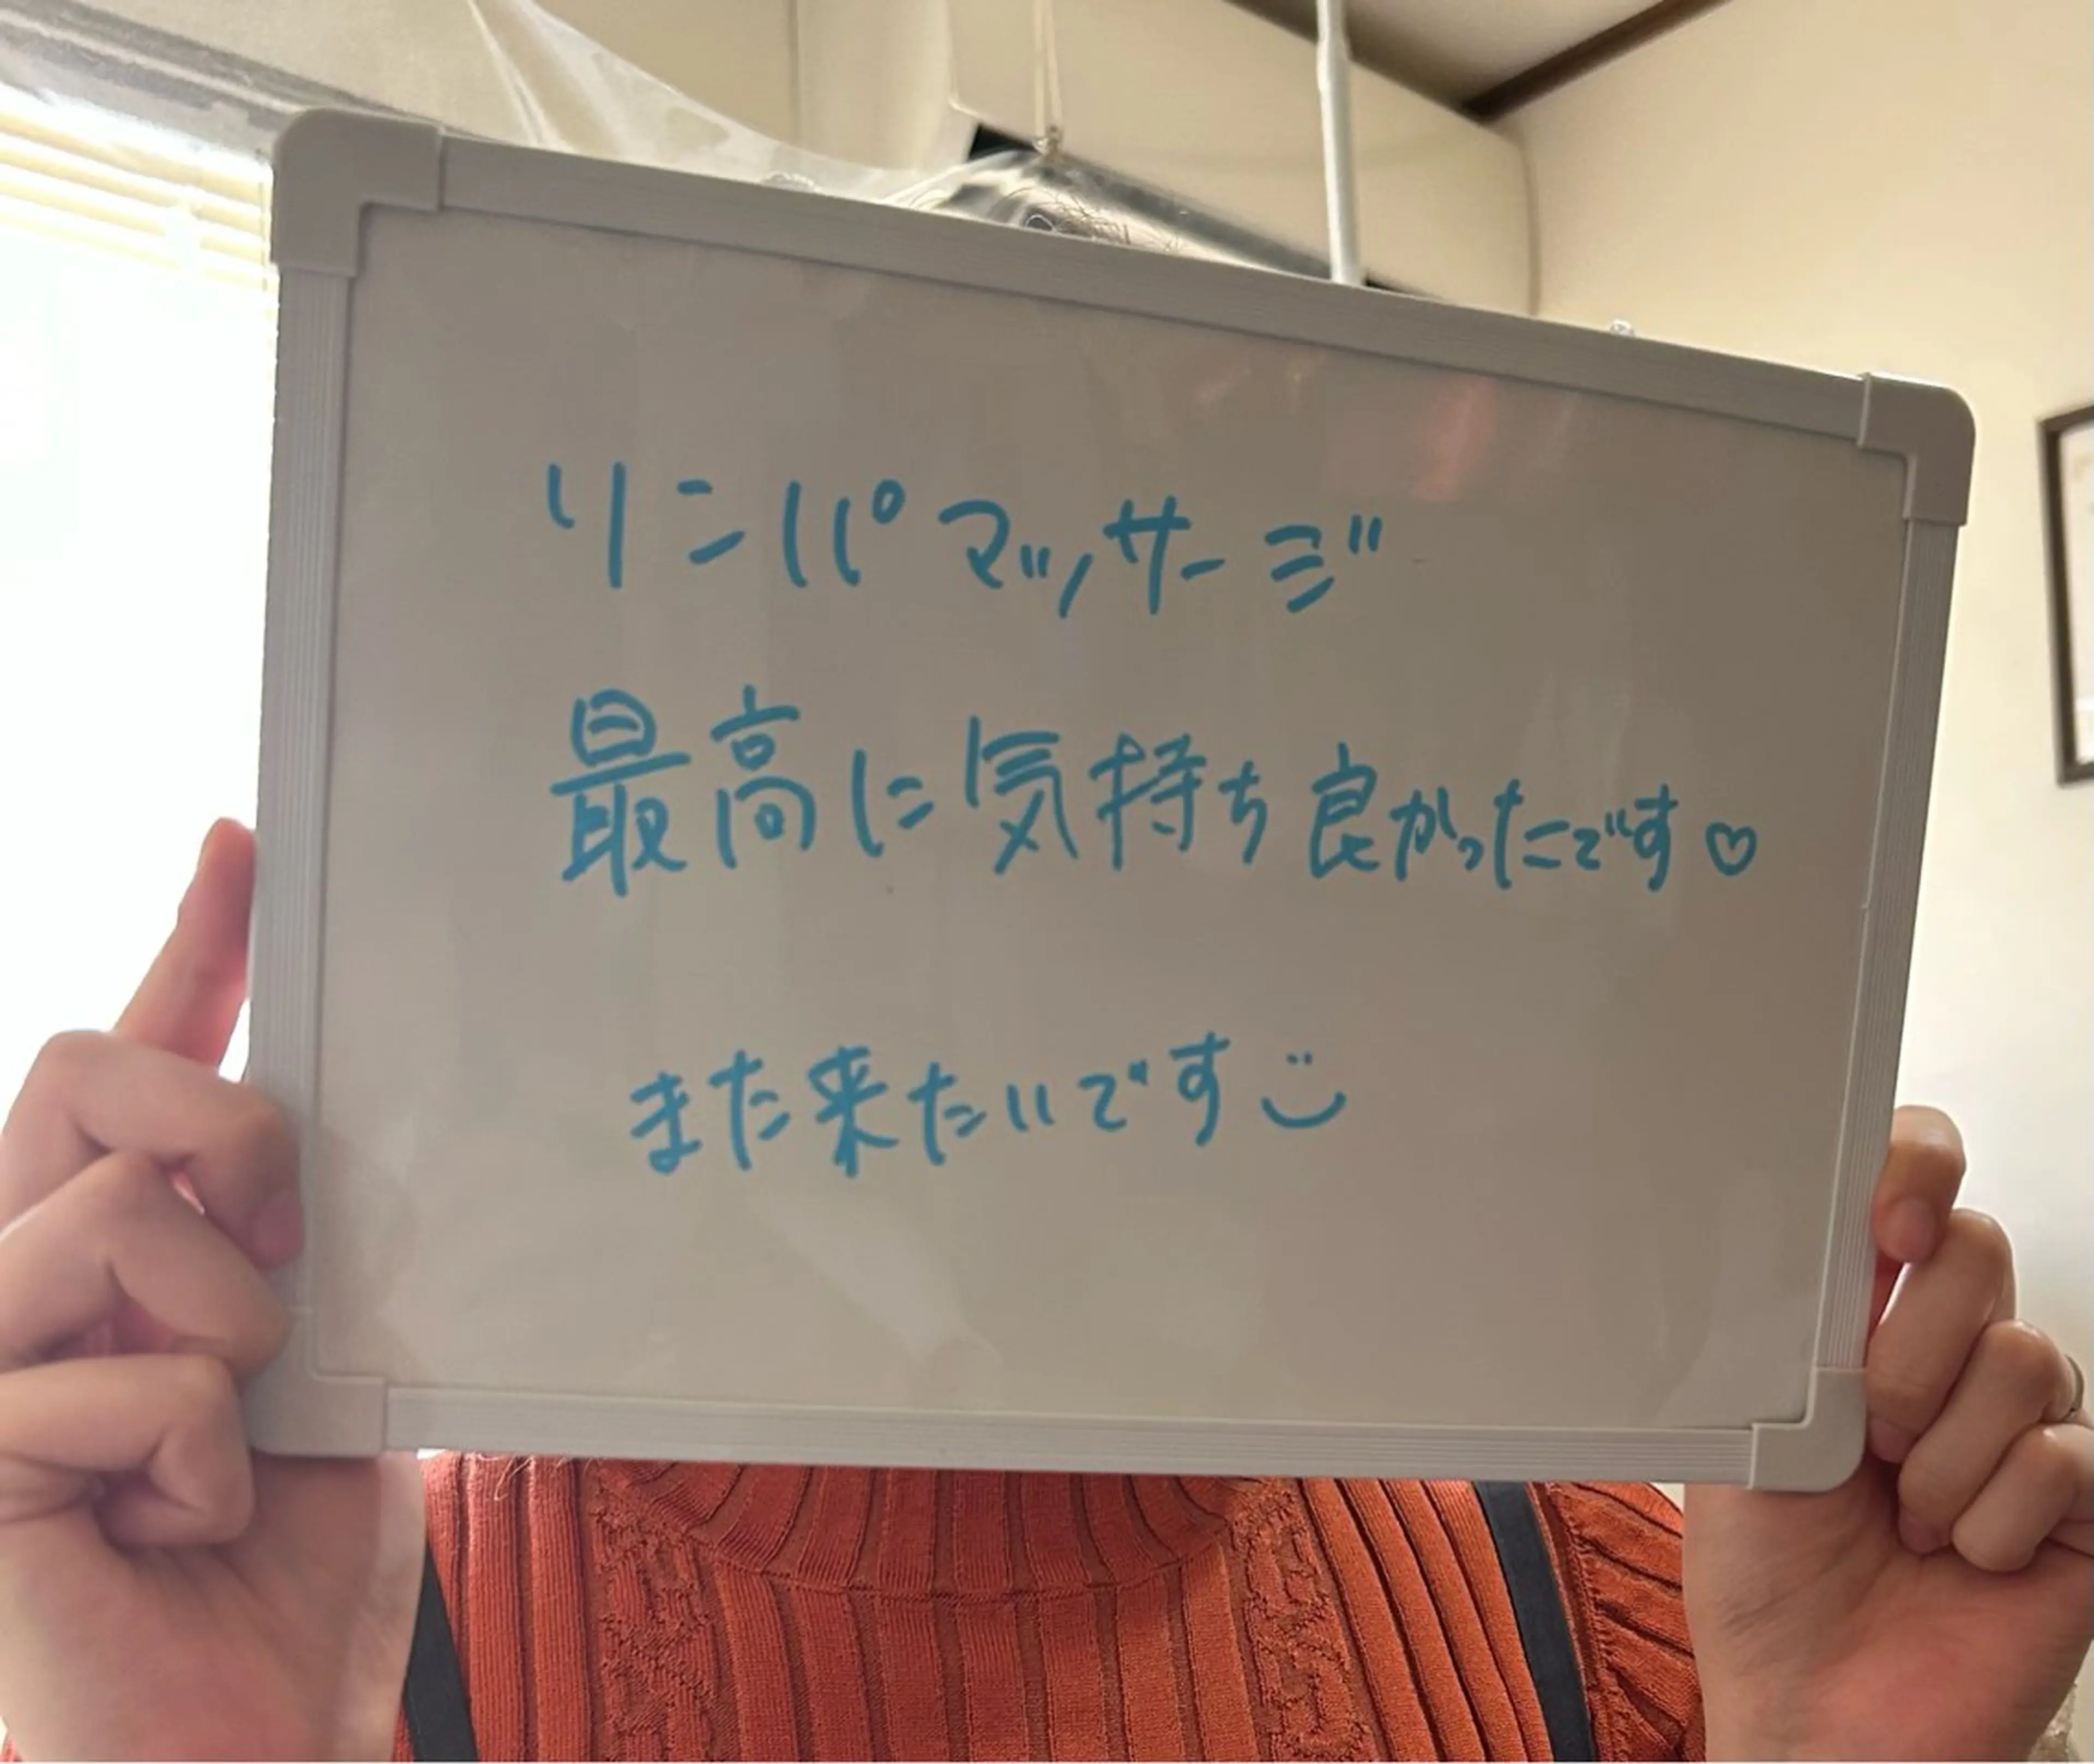 リンパマッサージ
最高に気持ち良かったです♡
また来たいです